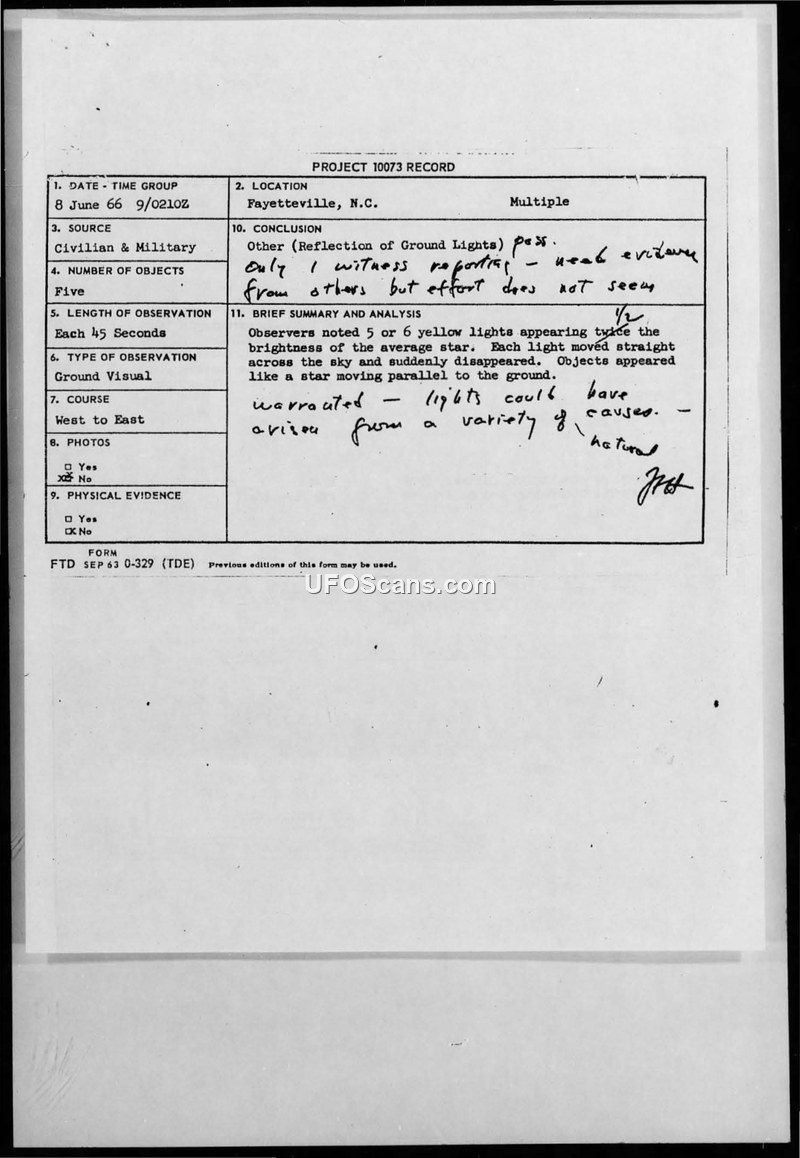 PROJECT 10073 RECORD
1. DATE - TIME GROUP
8 June 66 9/0210Z
2. LOCATION
Fayetteville, N.C. Multiple
3. SOURCE
Civilian & Military
4. NUMBER OF OBJECTS
Five
5. LENGTH OF OBSERVATION
Each 45 Seconds
6. TYPE OF OBSERVATION
Ground Visual
7. COURSE
West to East
8. PHOTOS
□ Yes
No
9. PHYSICAL EVIDENCE
□ Yes
No
10. CONCLUSION
Other (Reflection of Ground Lights) poss.
Only 1 witness reporting - need evidence
from others but effort does not seem
11. BRIEF SUMMARY AND ANALYSIS
1/2
Observers noted 5 or 6 yellow lights appearing twice the
brightness of the average star. Each light moved straight
across the sky and suddenly disappeared. Objects appeared
like a star moving parallel to the ground.
warranted - lights could have
arisen from a variety of causes. -
natural
FORM
FTD SEP 63 0-329 (TDE) Previous editions of this form may be used.
UFOScans.com